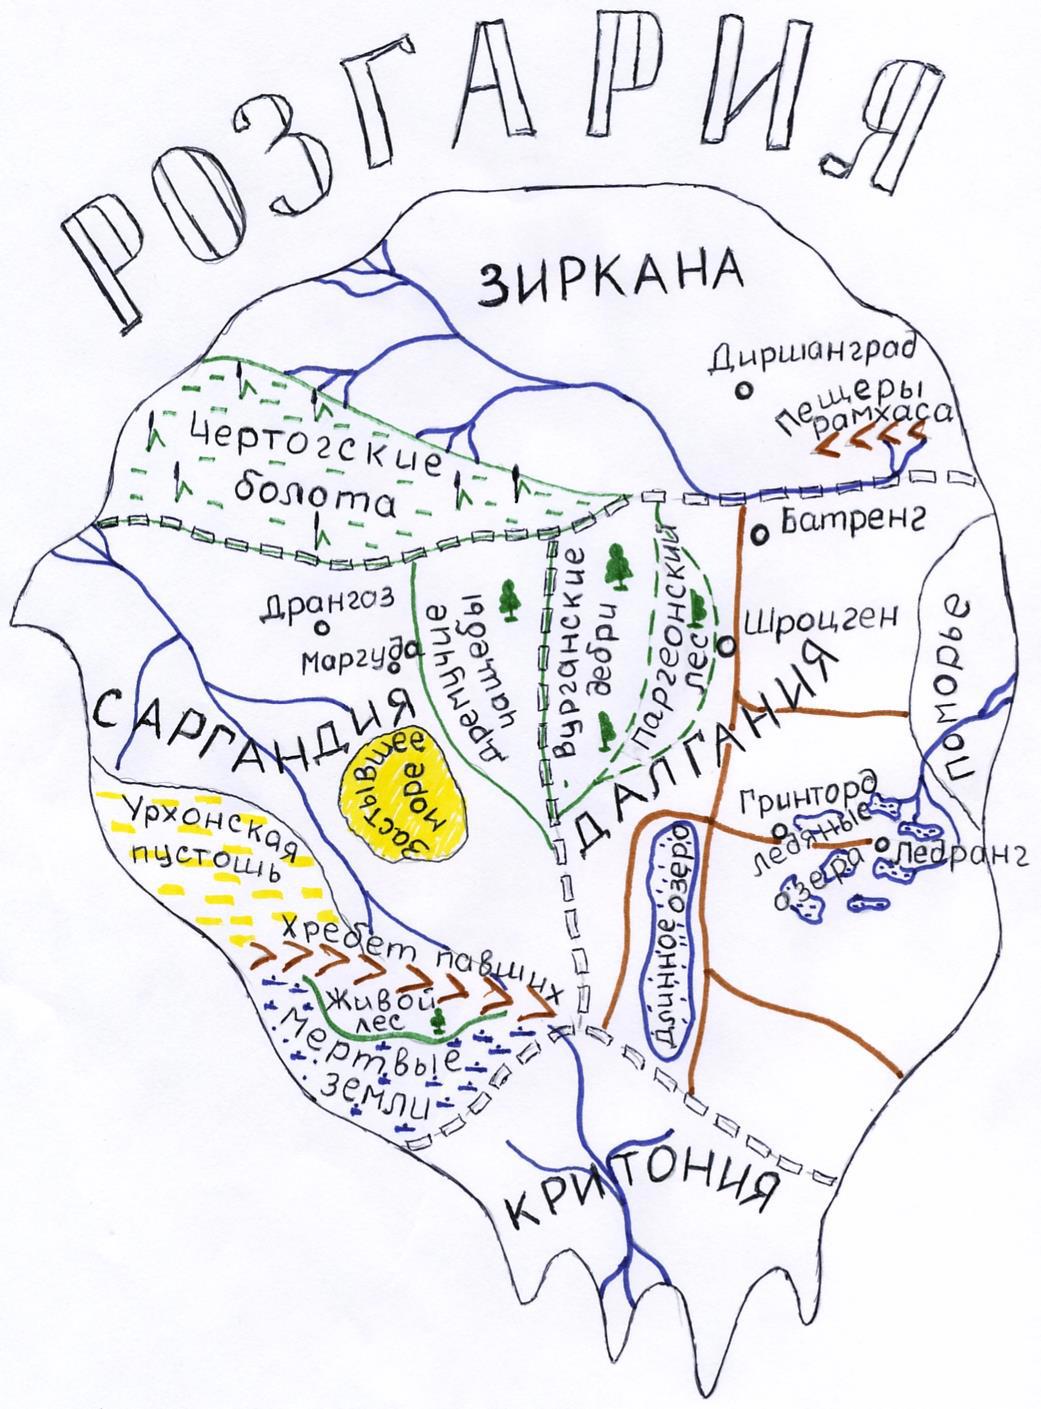 РОЗГАРИЯ
ЗИРКАНА
Диршанград
Пещеры
рамхаса
Чертогские
болота
Батренг
Дрангоз
Маргуда
дремучие
чащебы
Вурганские
дебри
Паргеонский
лес
Шроцген
Поморье
САРГАНДИЯ
ДАЛГАНИЯ
Застывшее
море
Урхонская
пустошь
Гринторд
ледяные
озера
Ледранг
Длинное озеро
Хребет павших
Живой
лес
Мертвые
земли
КРИТОНИЯ